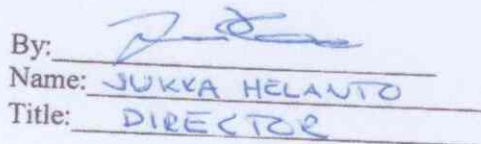 By:
Name: JUKKA HELANTO
Title: DIRECTOR